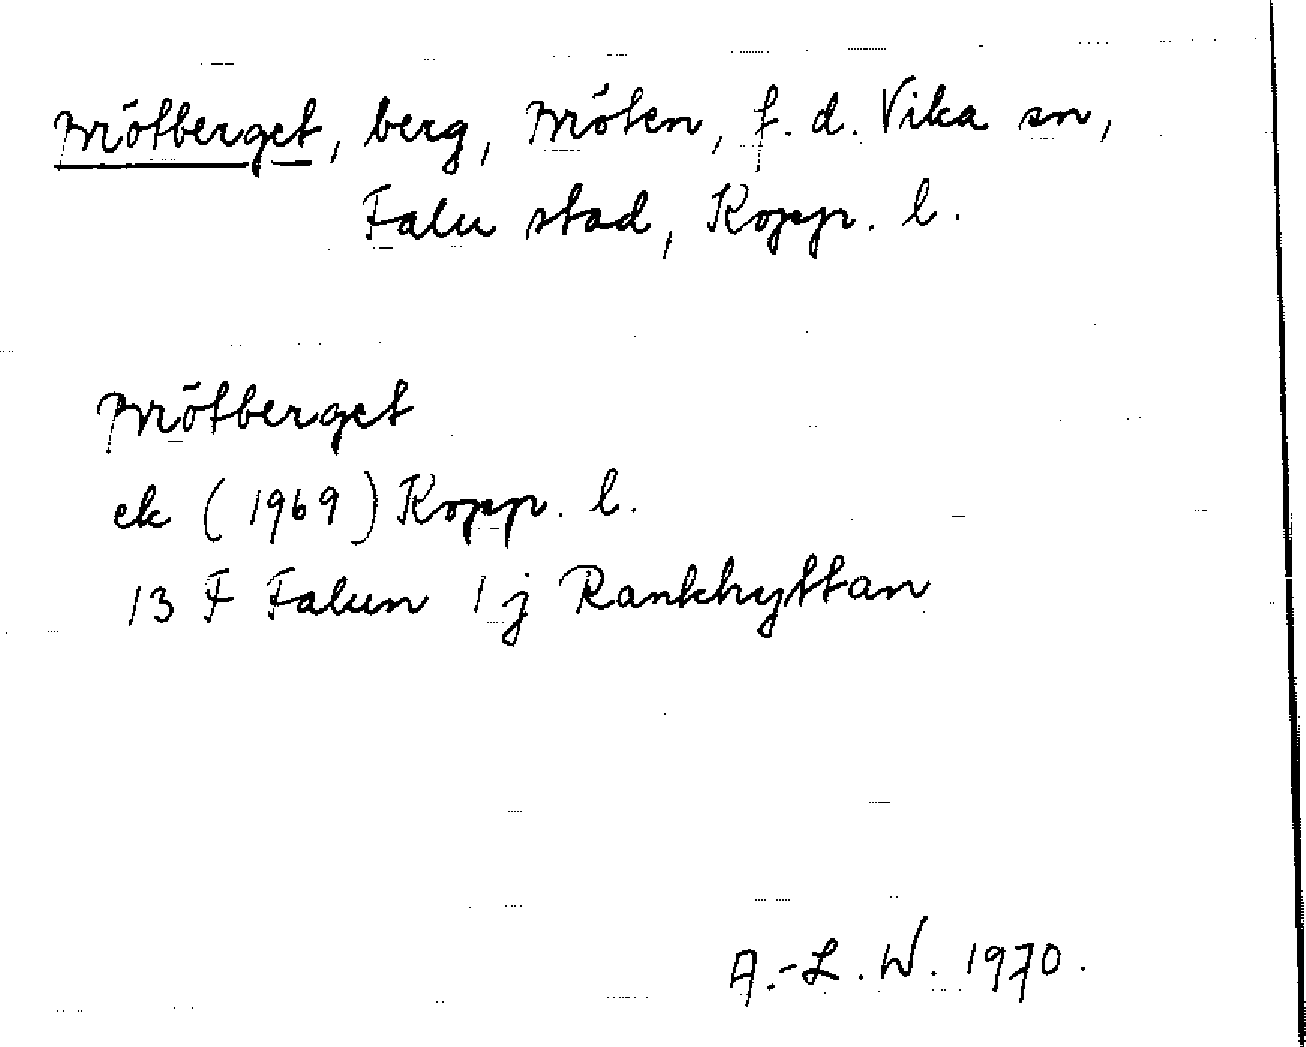 Mötberget, berg, Möten, f. d. Vika sn,
Falu stad, Kopp. l.
Mötberget
ek (1969) Kopp. l.
13 F Falun 1 j Rankhyttan
A.-L. W. 1970.